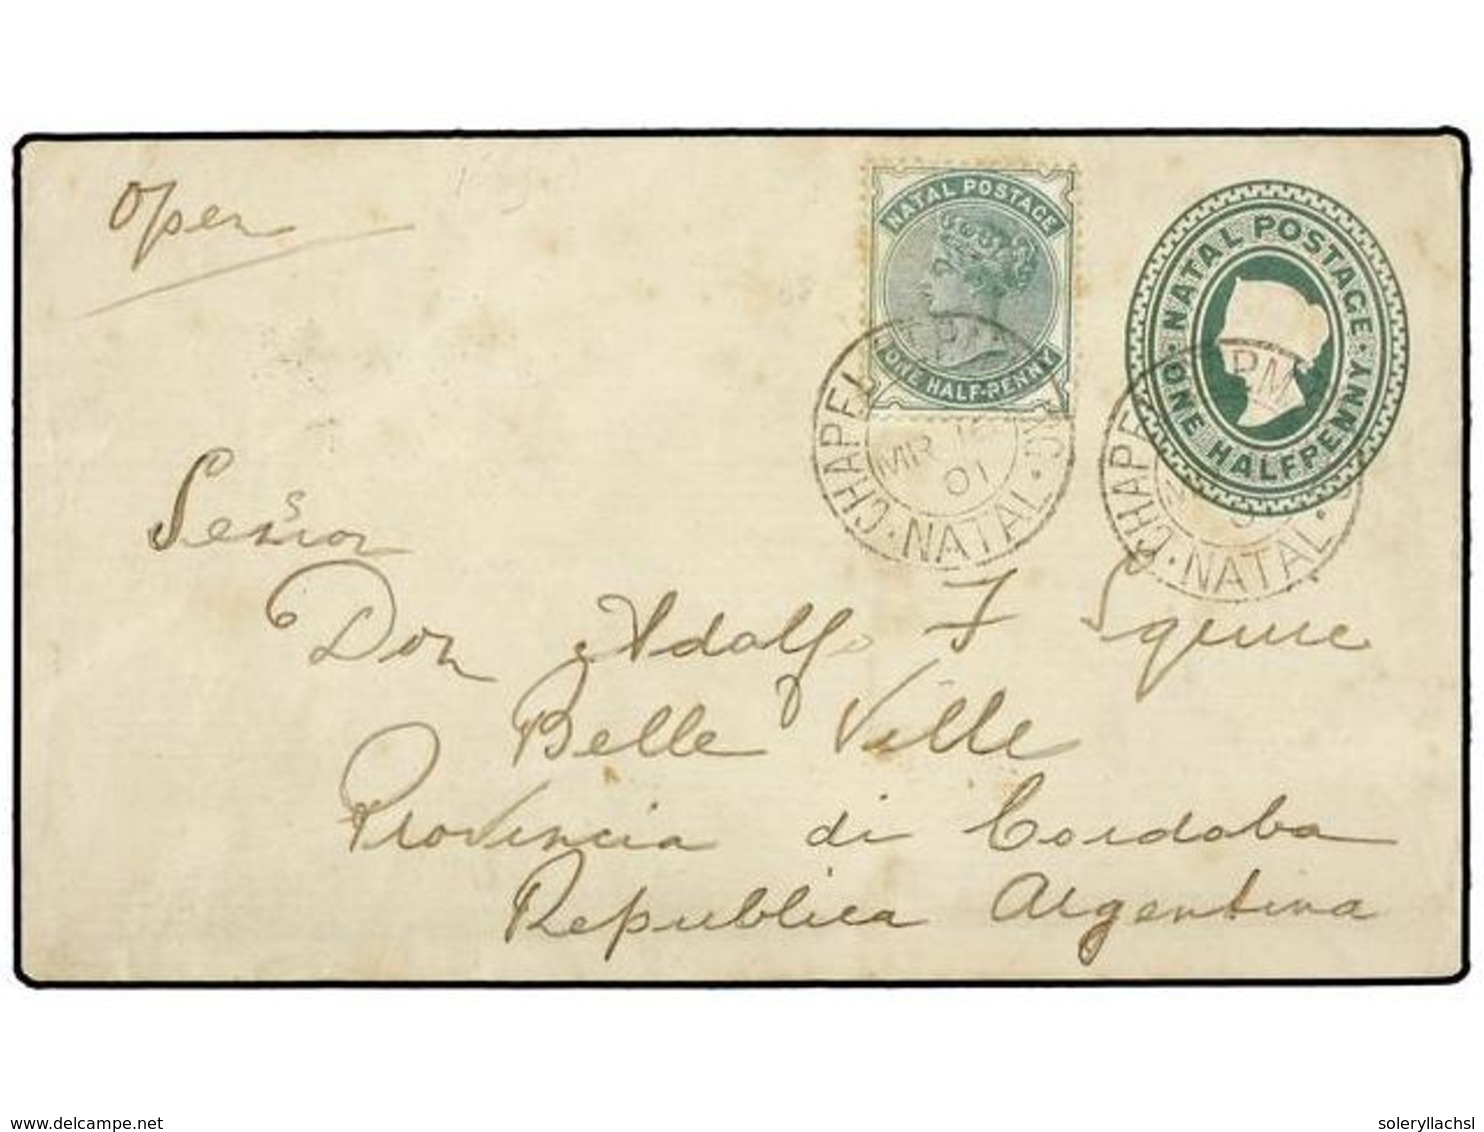 Open
NATAL POSTAGE
ONE HALF-PENNY
NATAL POSTAGE
ONE HALFPENNY
PM
CHAPEL
MR
01
NATAL
PM
NATAL
Señor
Don Adolfo F
Belle Ville
Provincia di Cordoba
Republica Argentina
delcampe.net
soleryllachsl